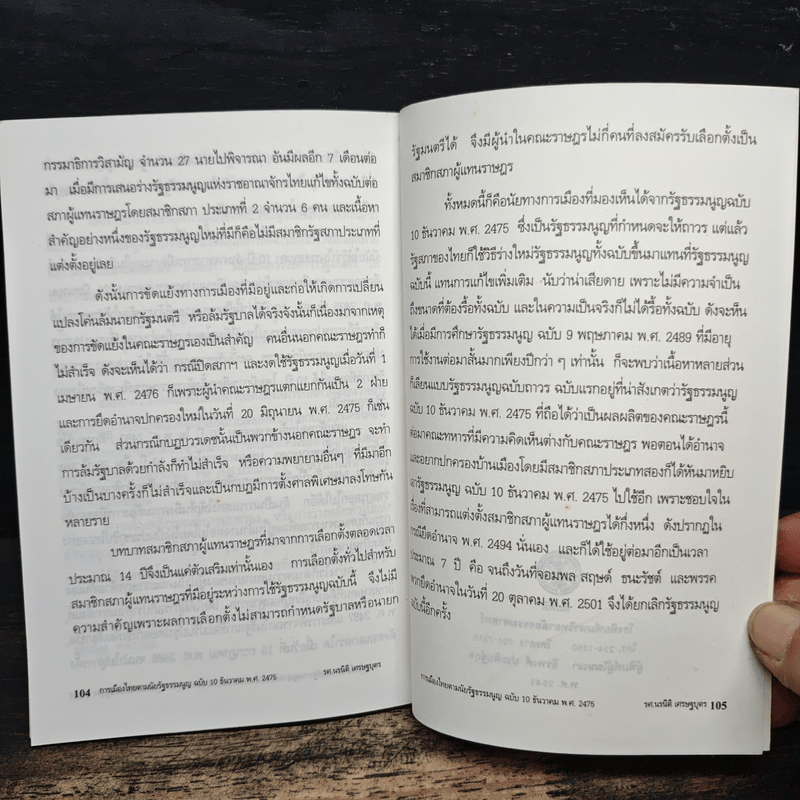 กรรมาธิการวิสามัญ จำนวน 27 นายไปพิจารณา อันมีผลอีก 7 เดือนต่อ
มา เมื่อมีการเสนอร่างรัฐธรรมนูญแห่งราชอาณาจักรไทยแก้ไขทั้งฉบับต่อ
สภาผู้แทนราษฎรโดยสมาชิกสภา ประเภทที่ 2 จำนวน 6 คน และเนื้อหา
สำคัญอย่างหนึ่งของรัฐธรรมนูญใหม่ที่มีก็คือไม่มีสมาชิกรัฐสภาประเภทที่
แต่งตั้งอยู่เลย
ดังนั้นการขัดแย้งทางการเมืองที่มีอยู่และก่อให้เกิดการเปลี่ยน
แปลงโค่นล้มนายกรัฐมนตรี หรือล้มรัฐบาลได้จริงจังนั้นก็เนื่องมาจากเหตุ
ของการขัดแย้งในคณะราษฎรเองเป็นสำคัญ คนอื่นนอกคณะราษฎรทำก็
ไม่สำเร็จ ดังจะเห็นได้ว่า กรณีปิดสภาฯ และงดใช้รัฐธรรมนูญเมื่อวันที่ 1
เมษายน พ.ศ. 2476 ก็เพราะผู้นำคณะราษฎรแตกแยกกันเป็น 2 ฝ่าย
และการยึดอำนาจปกครองใหม่ในวันที่ 20 มิถุนายน พ.ศ. 2475 ก็เช่น
เดียวกัน ส่วนกรณีกบฏบวรเดชนั้นเป็นพวกข้างนอกคณะราษฎร จะทำ
การล้มรัฐบาลด้วยกำลังก็ทำไม่สำเร็จ หรือความพยายามอื่นๆ ที่มีมาอีก
บ้างเป็นบางครั้งก็ไม่สำเร็จและเป็นกบฏมีการตั้งศาลพิเศษมาลงโทษกัน
หลายราย
บทบาทสมาชิกสภาผู้แทนราษฎรที่มาจากการเลือกตั้งตลอดเวลา
ประมาณ 14 ปีจึงเป็นแค่ตัวเสริมเท่านั้นเอง การเลือกตั้งทั่วไปสำหรับ
สมาชิกสภาผู้แทนราษฎรที่มีอยู่ระหว่างการใช้รัฐธรรมนูญฉบับนี้ จึงไม่มี
ความสำคัญเพราะผลการเลือกตั้งไม่สามารถกำหนดรัฐบาลหรือนายก
104 การเมืองไทยตามนัยรัฐธรรมนูญ ฉบับ 10 ธันวาคม พ.ศ. 2475 รศ.นรนิติ เศรษฐบุตร
รัฐมนตรีได้ จึงมีผู้นำในคณะราษฎรไม่กี่คนที่ลงสมัครรับเลือกตั้งเป็น
สมาชิกสภาผู้แทนราษฎร
ทั้งหมดนี้ก็คือนัยทางการเมืองที่มองเห็นได้จากรัฐธรรมนูญฉบับ
10 ธันวาคม พ.ศ. 2475 ซึ่งเป็นรัฐธรรมนูญที่กำหนดจะให้ถาวร แต่แล้ว
รัฐสภาของไทยก็ใช้วิธีร่างใหม่รัฐธรรมนูญทั้งฉบับขึ้นมาแทนที่รัฐธรรมนูญ
ฉบับนี้ แทนการแก้ไขเพิ่มเติม นับว่าน่าเสียดาย เพราะไม่มีความจำเป็น
ถึงขนาดที่ต้องรื้อทั้งฉบับ และในความเป็นจริงก็ไม่ได้รื้อทั้งฉบับ ดังจะเห็น
ได้เมื่อมีการศึกษารัฐธรรมนูญ ฉบับ 9 พฤษภาคม พ.ศ. 2489 ที่มีอายุ
การใช้งานต่อมาสั้นมากเพียงปีกว่า ๆ เท่านั้น ก็จะพบว่าเนื้อหาหลายส่วน
ก็เลียนแบบรัฐธรรมนูญฉบับถาวร ฉบับแรกอยู่ที่น่าสังเกตว่ารัฐธรรมนูญ
ฉบับ 10 ธันวาคม พ.ศ. 2475 ที่ถือได้ว่าเป็นผลผลิตของคณะราษฎรนี้
ต่อมาคณะทหารที่มีความคิดเห็นต่างกับคณะราษฎร พอตอนได้อำนาจ
และอยากปกครองบ้านเมืองโดยมีสมาชิกสภาประเภทสองก็ได้หันมาหยิบ
เอารัฐธรรมนูญ ฉบับ 10 ธันวาคม พ.ศ. 2475 ไปใช้อีก เพราะชอบใจใน
เรื่องที่สามารถแต่งตั้งสมาชิกสภาผู้แทนราษฎรได้กึ่งหนึ่ง ดังปรากฏใน
กรณียึดอำนาจ พ.ศ. 2494 นั่นเอง และก็ได้ใช้อยู่ต่อมาอีกเป็นเวลา
ประมาณ 7 ปี คือ จนถึงวันที่จอมพล สฤษดิ์ ธนะรัชต์ และพรรค
พวกยึดอำนาจในวันที่ 20 ตุลาคม พ.ศ. 2501 จึงได้ยกเลิกรัฐธรรมนูญ
ฉบับนี้อีกครั้ง
การเมืองไทยตามนัยรัฐธรรมนูญ ฉบับ 10 ธันวาคม พ.ศ. 2475 รศ.นรนิติ เศรษฐบุตร 105